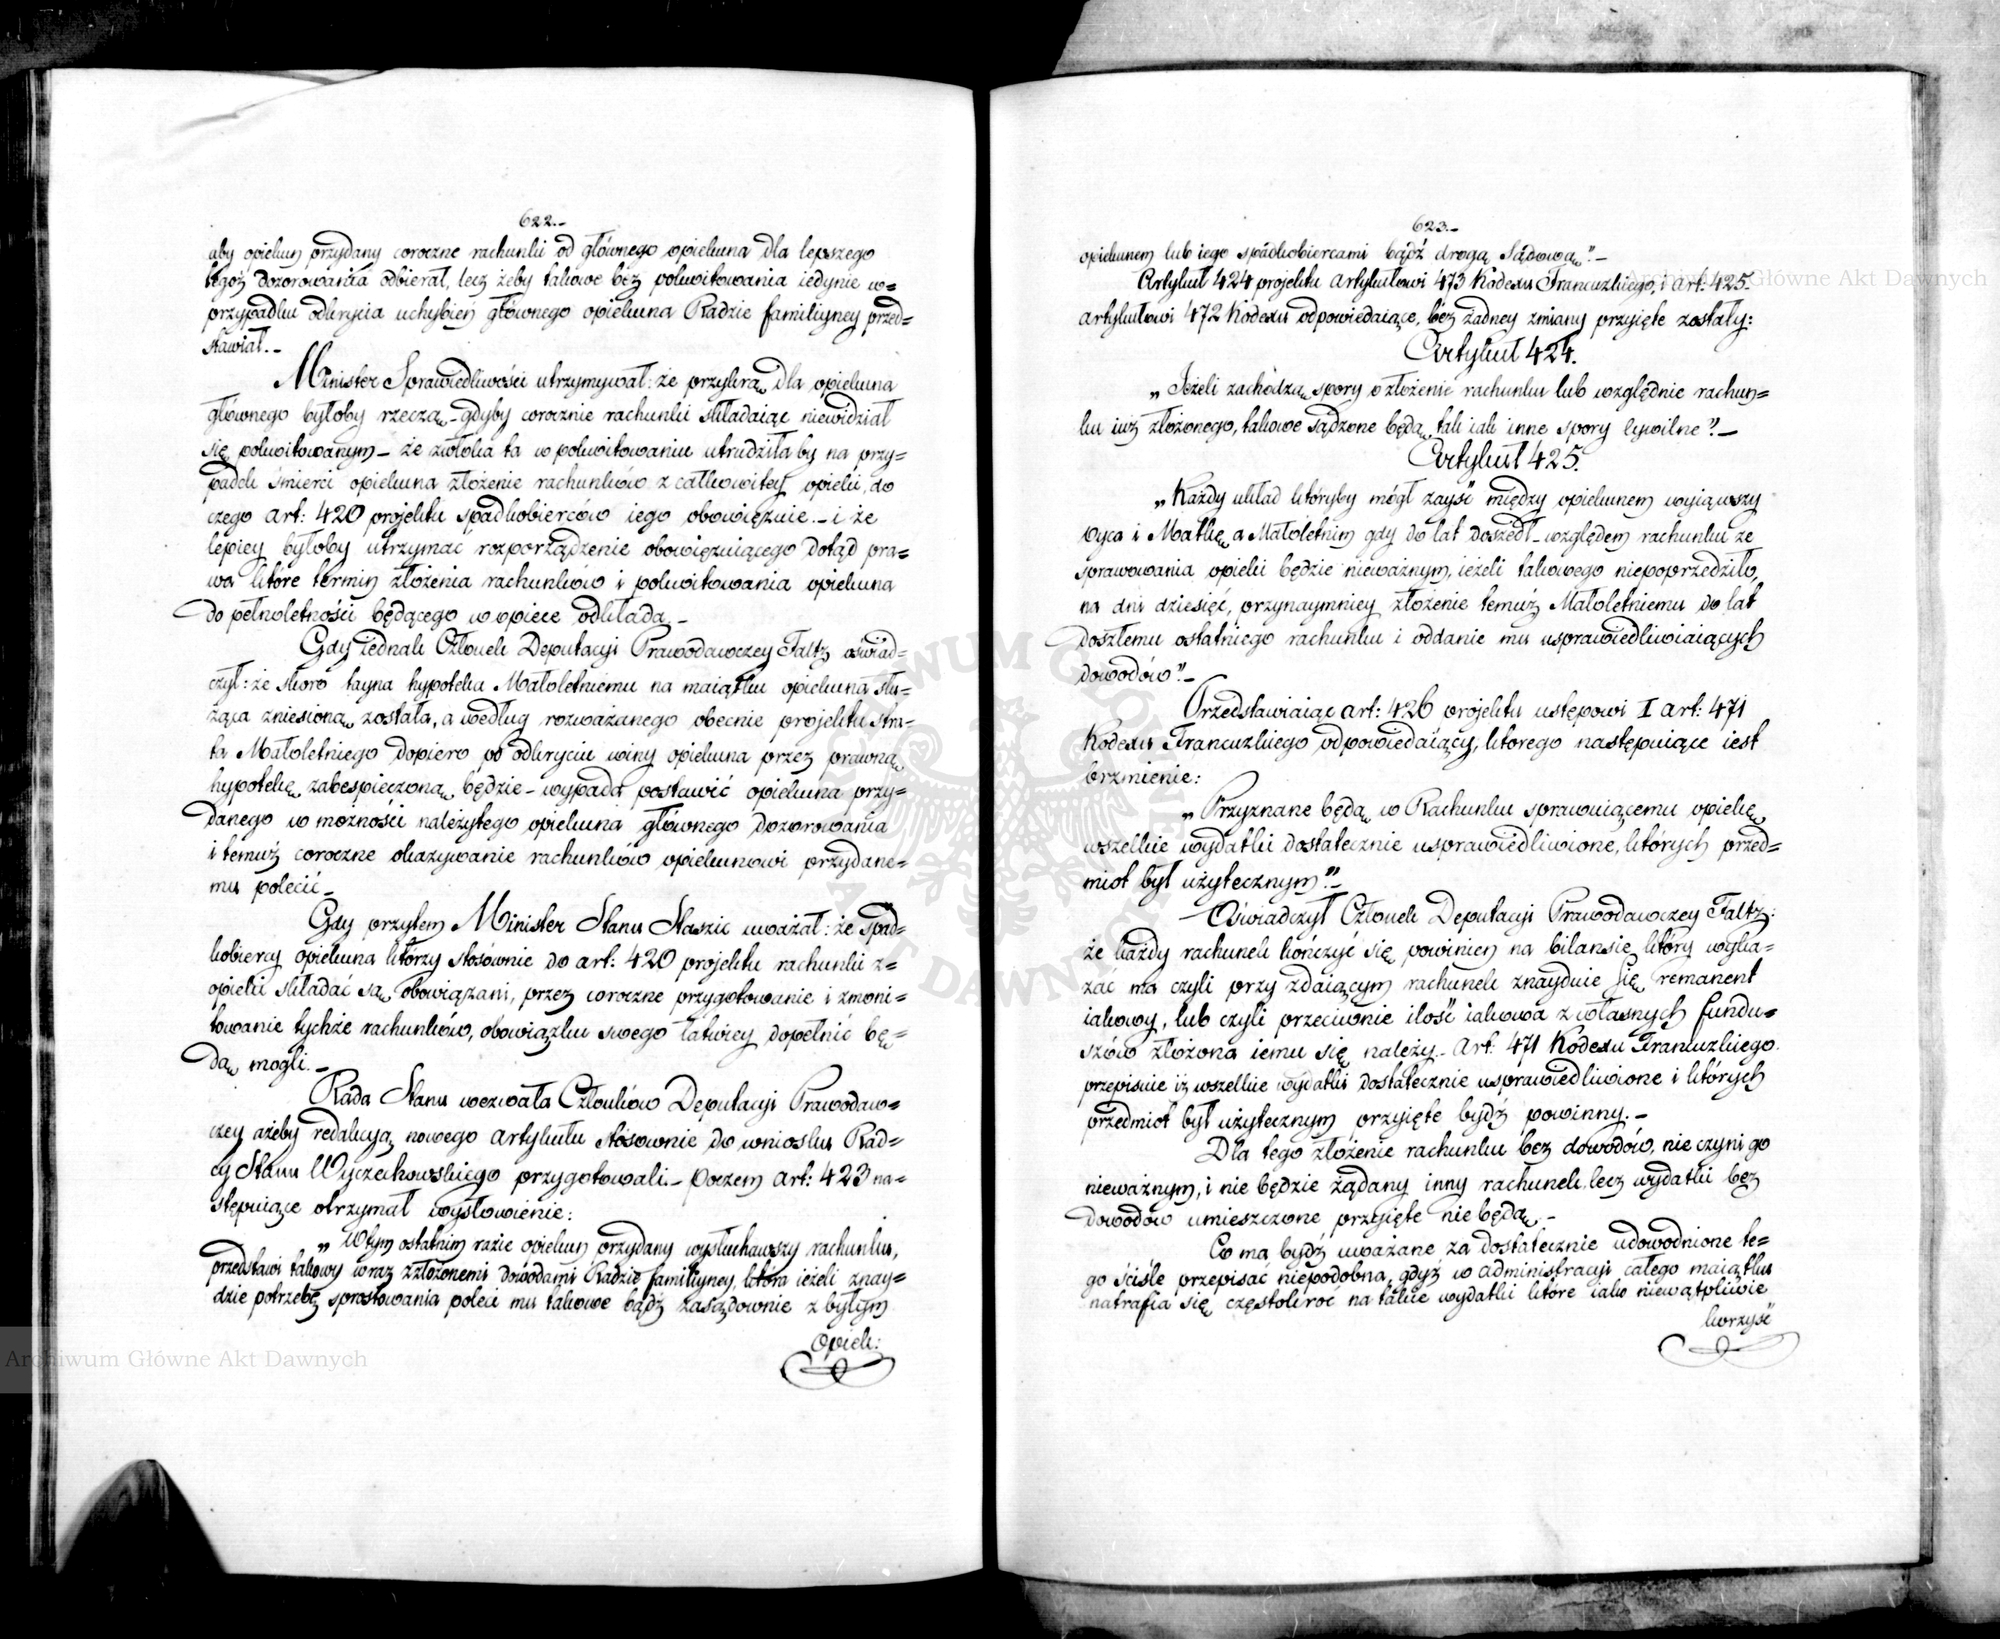 622.-
aby opiekun przydany coroczne rachunki od głównego opiekuna dla lepszego
tegoż dozorowania odbierał, lecz żeby takowe bez pokwitowania iedynie w=
przypadku odkrycia uchybień głównego opiekuna Radzie familiyney przed=
stawiał.-
Minister Sprawiedliwości utrzymywał: że przykrą dla opiekuna
głównego byłoby rzeczą - gdyby corocznie rachunki składaiąc niewidział
się pokwitowanym - że zwłoka ta w pokwitowaniu utrudziła by na przy=
padek śmierci opiekuna złożenie rachunków z całkowitey opieki, do
czego art: 420 projektu spadkobierców iego obowięzuie. - i że
lepiey byłoby utrzymać rozporządzenie obowięzuiącego dotąd pra=
wa które termin złożenia rachunków i pokwitowania opiekuna
do pełnoletności będącego w opiece odkłada -
Gdy iednak Członek Deputacyi Prawodawczey Faltz oświad=
czył: że skoro tayna hypoteka Małoletniemu na maiątku opiekuna słu=
żąca zniesioną została, a według rozważanego obecnie projektu stra=
ta Małoletniego dopiero po odkryciu winy opiekuna przez prawną
hypotekę zabespieczoną będzie - wypada postawić opiekuna przy=
danego w możności należytego opiekuna głównego dozorowania
i temuż coroczne okazywanie rachunków opiekunowi przydane=
mu polecić -
Gdy przytem Minister Stanu Staszic uważał: że spad=
kobiercy opiekuna którzy stósównie do art: 420 projektu rachunki z=
opieki składać są obowiązani, przez coroczne przygotowanie i zmoni=
towanie tychże rachunków, obowiązku swego łatwiey dopełnić bę=
dą mogli. -
Rada Stanu wezwała Członków Deputacyi Prawodaw=
czey ażeby redakcyą nowego artykułu stósownie do wniosku Rad=
cy Stanu Wyczechowskiego przygotowali. - Poczem art: 423 na=
stępuiące otrzymał wysłowienie:
„Wtym ostatnim razie opiekun przydany wysłuchawszy rachunku,
przedstawi takowy wraz z złożonemi dowodami Radzie familiyney, która ieżeli znay=
dzie potrzebę sprostowania poleci mu takowe bądź zasądownie z byłym
Opiek:
623.-
opiekunem lub iego spádkobiercami bądź drogą Sądową”.-
Artykuł 424 projektu artykułowi 473 Kodexu Francuzkiego, i art: 425.
artykułowi 472 Kodexu odpowiedaiące, bez żadney zmiany przyięte zostały:
Artykuł 424.
„Jeżeli zachodzą spory o złożenie rachunku lub względnie rachun=
ku iuż złożonego, takowe sądzone będą tak iak inne spory cywilne”.-
Artykuł 425.
„Każdy układ któryby mógł zayść między opiekunem wyiąwszy
Oyca i Matkę a Małoletnim gdy do lat doszedł - względem rachunku ze
sprawowania opieki będzie nieważnym, ieżeli takowego niepoprzedziło,
na dni dziesięć, przynaymniey złożenie temuż Małoletniemu do lat
doszłemu ostatniego rachunku i oddanie mu usprawiedliwiaiących
dowodów”.-
Przedstawiaiąc art: 426 projektu ustępowi I art: 471
Kodexu Francuzkiego odpowiedaiący, ktorego następuiące iest
brzmienie:
„Przyznane będą w Rachunku sprawuiącemu opiekę,
wszelkie wydatki dostatecznie usprawiedliwione, których przed=
miot był użytecznym”.-
Oświadczył Członek Deputacyi Prawodawczey Faltz:
że każdy rachunek kończyć się powinien na bilansie, który wyka=
zać ma czyli przy zdaiącym rachunek znayduie się remanent
iakowy, lub czyli przeciwnie ilość iakowa z własnych fundu=
szów złożona iemu się należy. - Art: 471 Kodexu Francuzkiego
przepisuie iż wszelkie wydatki dostatecznie usprawiedliwione i których
przedmiot był użytecznym przyięte bydź powinny. -
Dla tego złożenie rachunku bez dowodów, nie czyni go
nieważnym, i nie będzie żądany inny rachunek, lecz wydatki bez
dowodów umieszczone przyięte nie będą. -
Co ma bydź uważane za dostatecznie udowodnione te=
go ściśle przepisać niepodobna, gdyż w administracyi całego maiątku
natrafia się częstokroć na takie wydatki które iako niewątpliwie
korzyść
Archiwum Główne Akt Dawnych
Archiwum Główne Akt Dawnych
ARCHIWUM GŁÓWNE AKT DAWNYCH